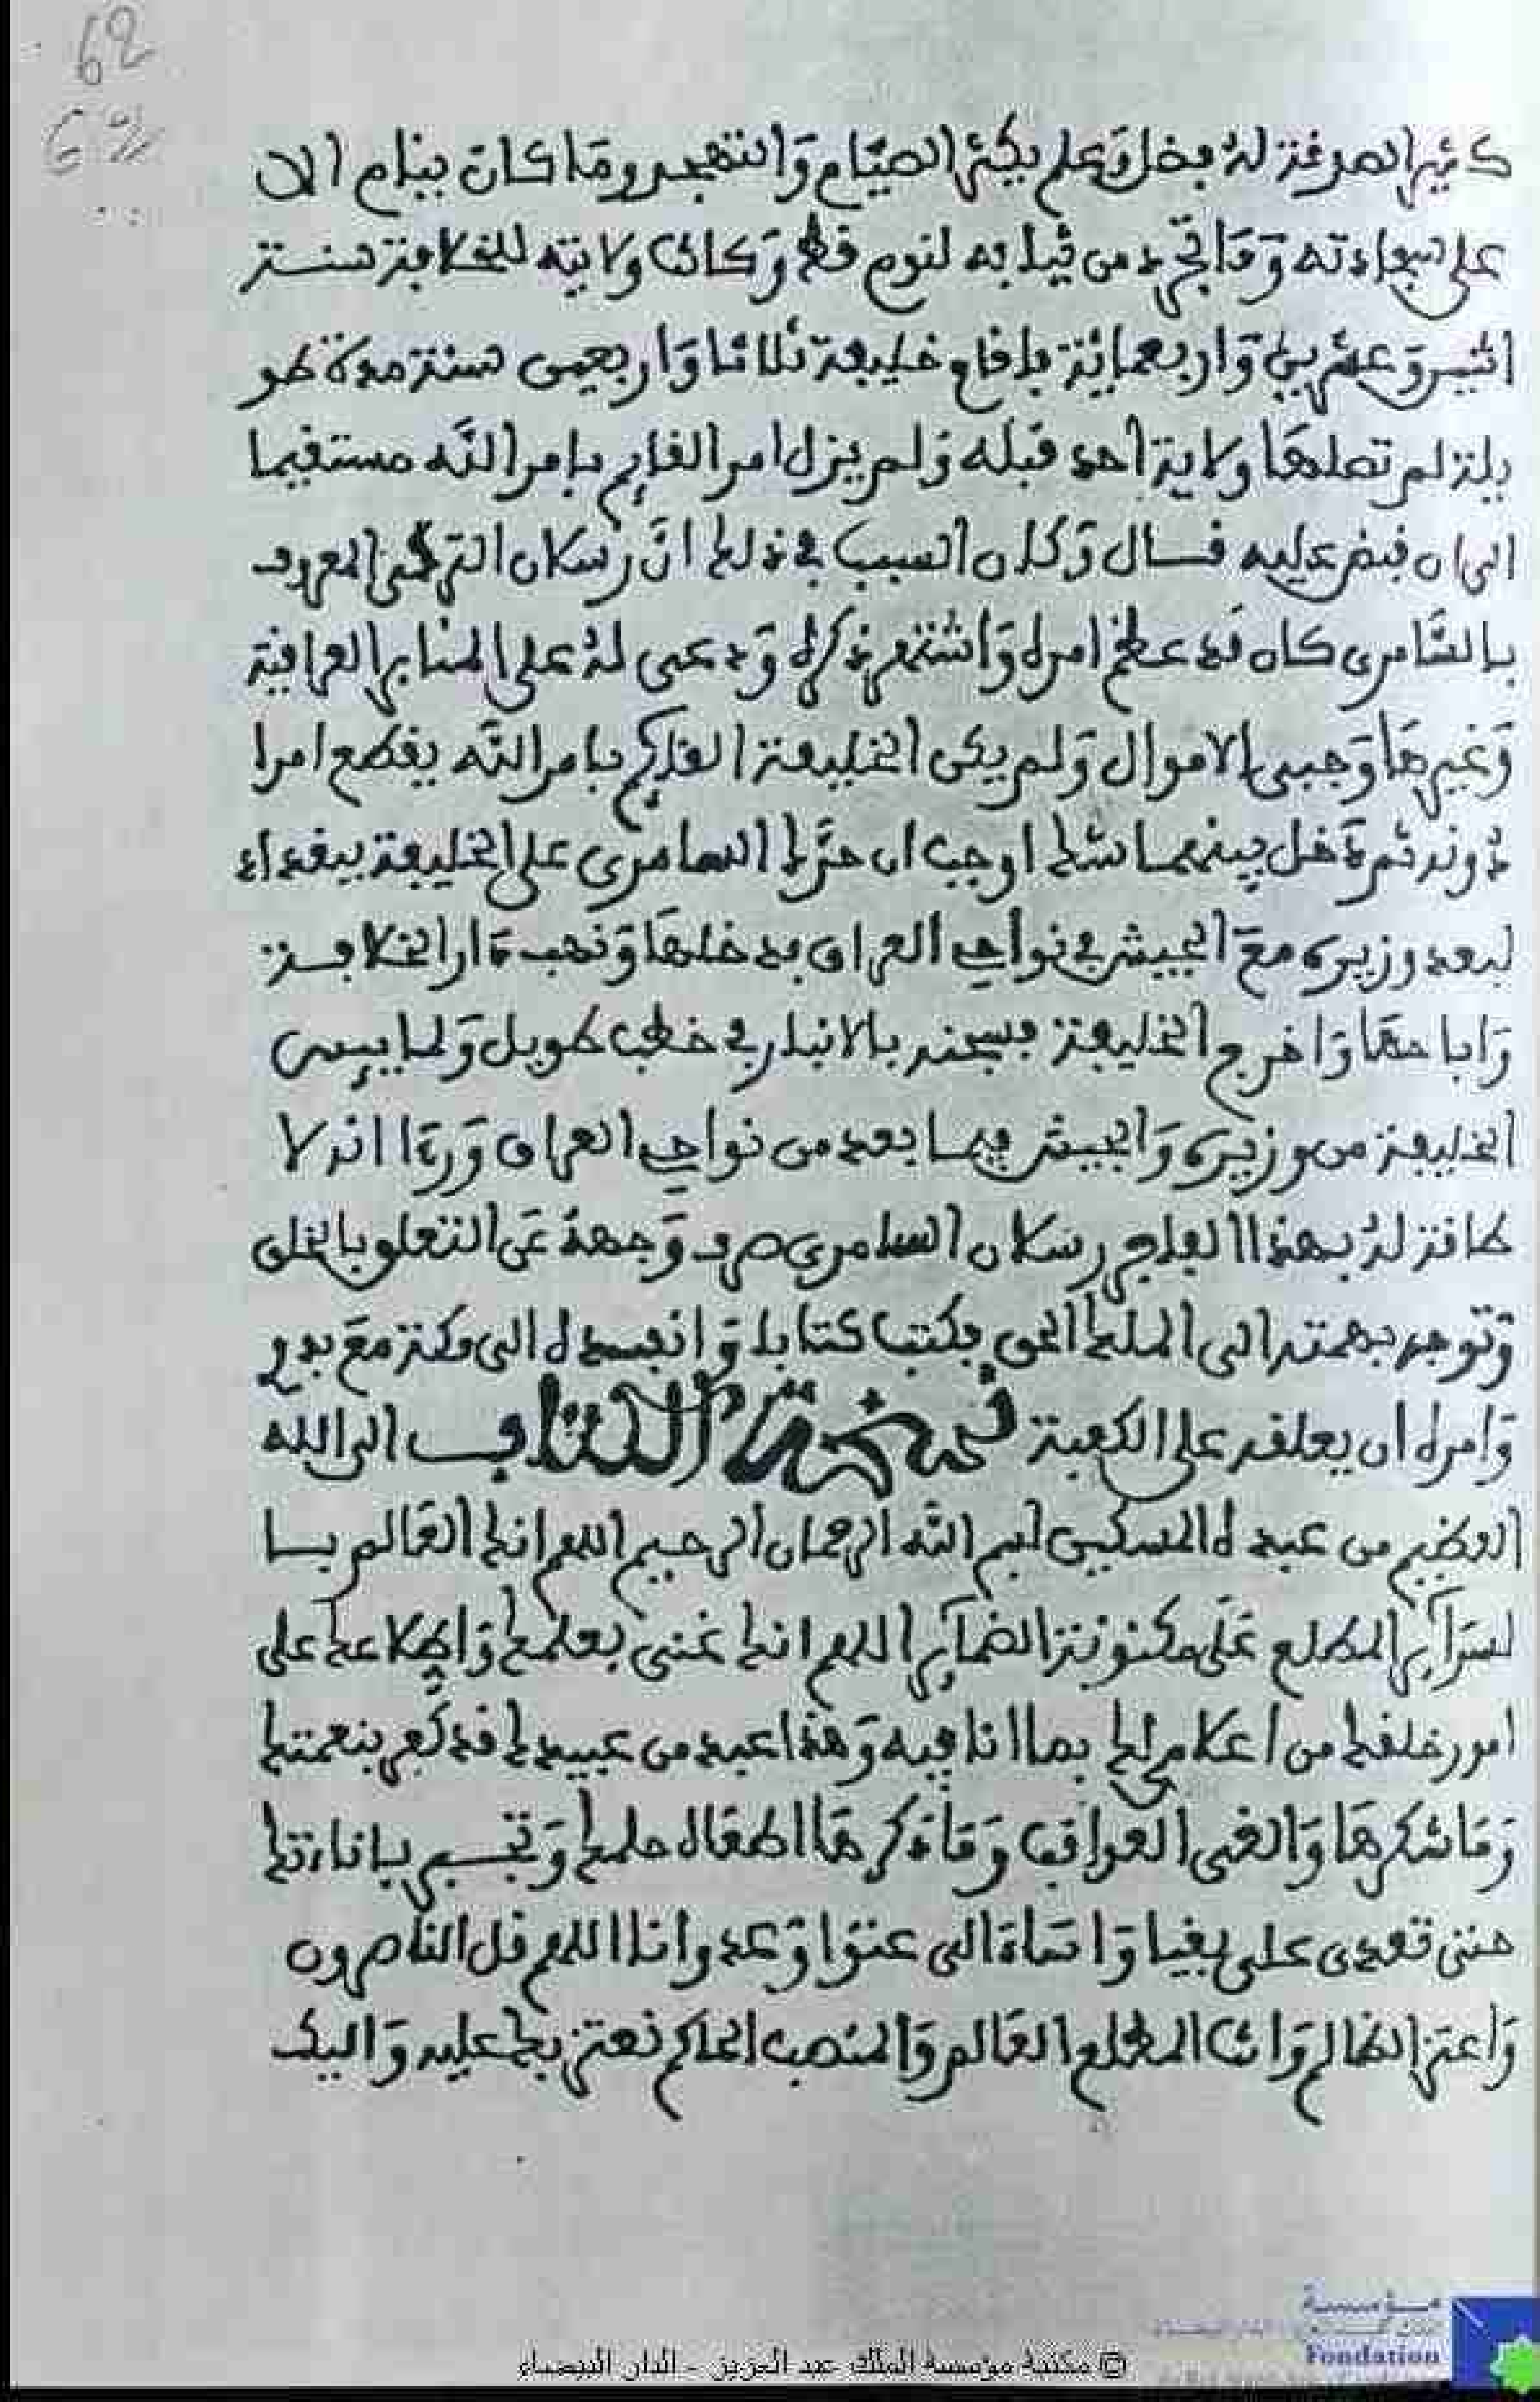 62
كثير الصدقة له فضل وعلم يكثر الصيام والتهجد وما كان ينام الا
على سجادته وما تجرد من ثيابه لنوم قط وكانت ولايته للخلافة سنة
اثنين وعشرين واربعمائة فاقام خليفة ثلاثا واربعين سنة مدة طو
يلة لم تصلها ولاية احد قبله ولم يزل امر القايم بامر الله مستقيما
الى ان قبض عليه قال وكان السبب في ذلك ان رسلان التركي المعروف
بالسامري كان قد عظم امره واشتهر ذكره ودعى له على المنابر العراقية
وغيرها وجبى الاموال ولم يكن الخليفة القايم بامر الله يقطع امرا
دونه ثم دخل بينهما شك اوجب ان السامري على الخليفة ببغداد
لبعد وزيره مع الجيش في نواحي العراق فدخلها ونهب دار الخلافة
واباحها واخرج الخليفة فسجنه بالانبار في خطب طويل ولما ييس
الخليفة من وزيره والجيش فيما بعد من نواحي العراق وردا انه لا
طاقة له بهذا الفاجر رسلان السامري صرف وجهه عن التعلق بالخلق
وتوجه بهمته الى الملك الحق فكتب كتابا وانفده الى مكة مع بدوي
وامره ان يعلقه على الكعبة نسخة الكتاب الى الله
العظيم من عبده المسكين بسم الله الرحمان الرحيم اللهم انك العالم با
لسرآير المطلع على مكنونة الضمآير اللهم انك غنى بعلمك واطلاعك على
امور خلقك من اعلامي لك بما انا فيه وهذا عبد من عبيدك قد كفر بنعمتك
وما شكرها والغى العواقب وما ذكرها اطغاه حلمك وتجبر باناءتك
حتى تعدى على بغيا واساء الى عتوا وعدوانا اللهم قل الناصرون
واعتز الظالم وانت المطلع العالم والمنصب الحاكم نعتز بك عليه واليك
© مكتبة مؤسسة الملك عبد العزيز - الدار البيضاء
مؤسسة
Fondation